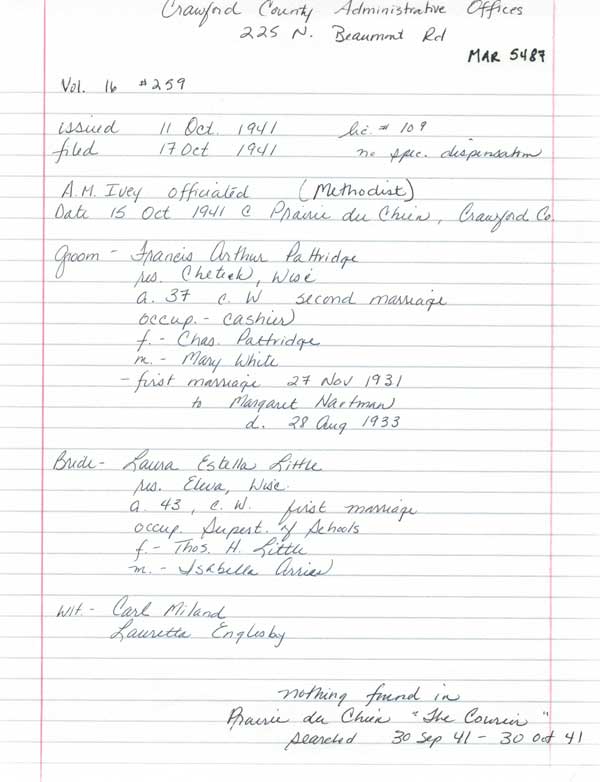 Crawford County Administrative Offices
225 N. Beaumont Rd
MAR 5487
Vol. 16 #259
issued 11 Oct. 1941 lic. # 109
filed 17 Oct 1941 no spec. dispensation
A.M. Ivey officiated (Methodist)
Date 15 Oct 1941 @ Prairie du Chien, Crawford Co.
Groom - Francis Arthur Pattridge
res. Chetek, Wisc
a. 37 c. W second marriage
occup. - cashier
f. - Chas. Pattridge
m. - Mary White
- first marriage 27 Nov 1931
to Margaret Nartman
d. 28 Aug 1933
Bride - Laura Estella Little
res. Eleva, Wisc.
a. 43, c. W. first marriage
occup. Supert. of Schools
f. - Thos. H. Little
m. - Isabella
Wit. - Carl Miland
Lauretta Englesby
nothing found in
Prairie du Chien "The Courier"
searched 30 Sep 41 - 30 Oct 41